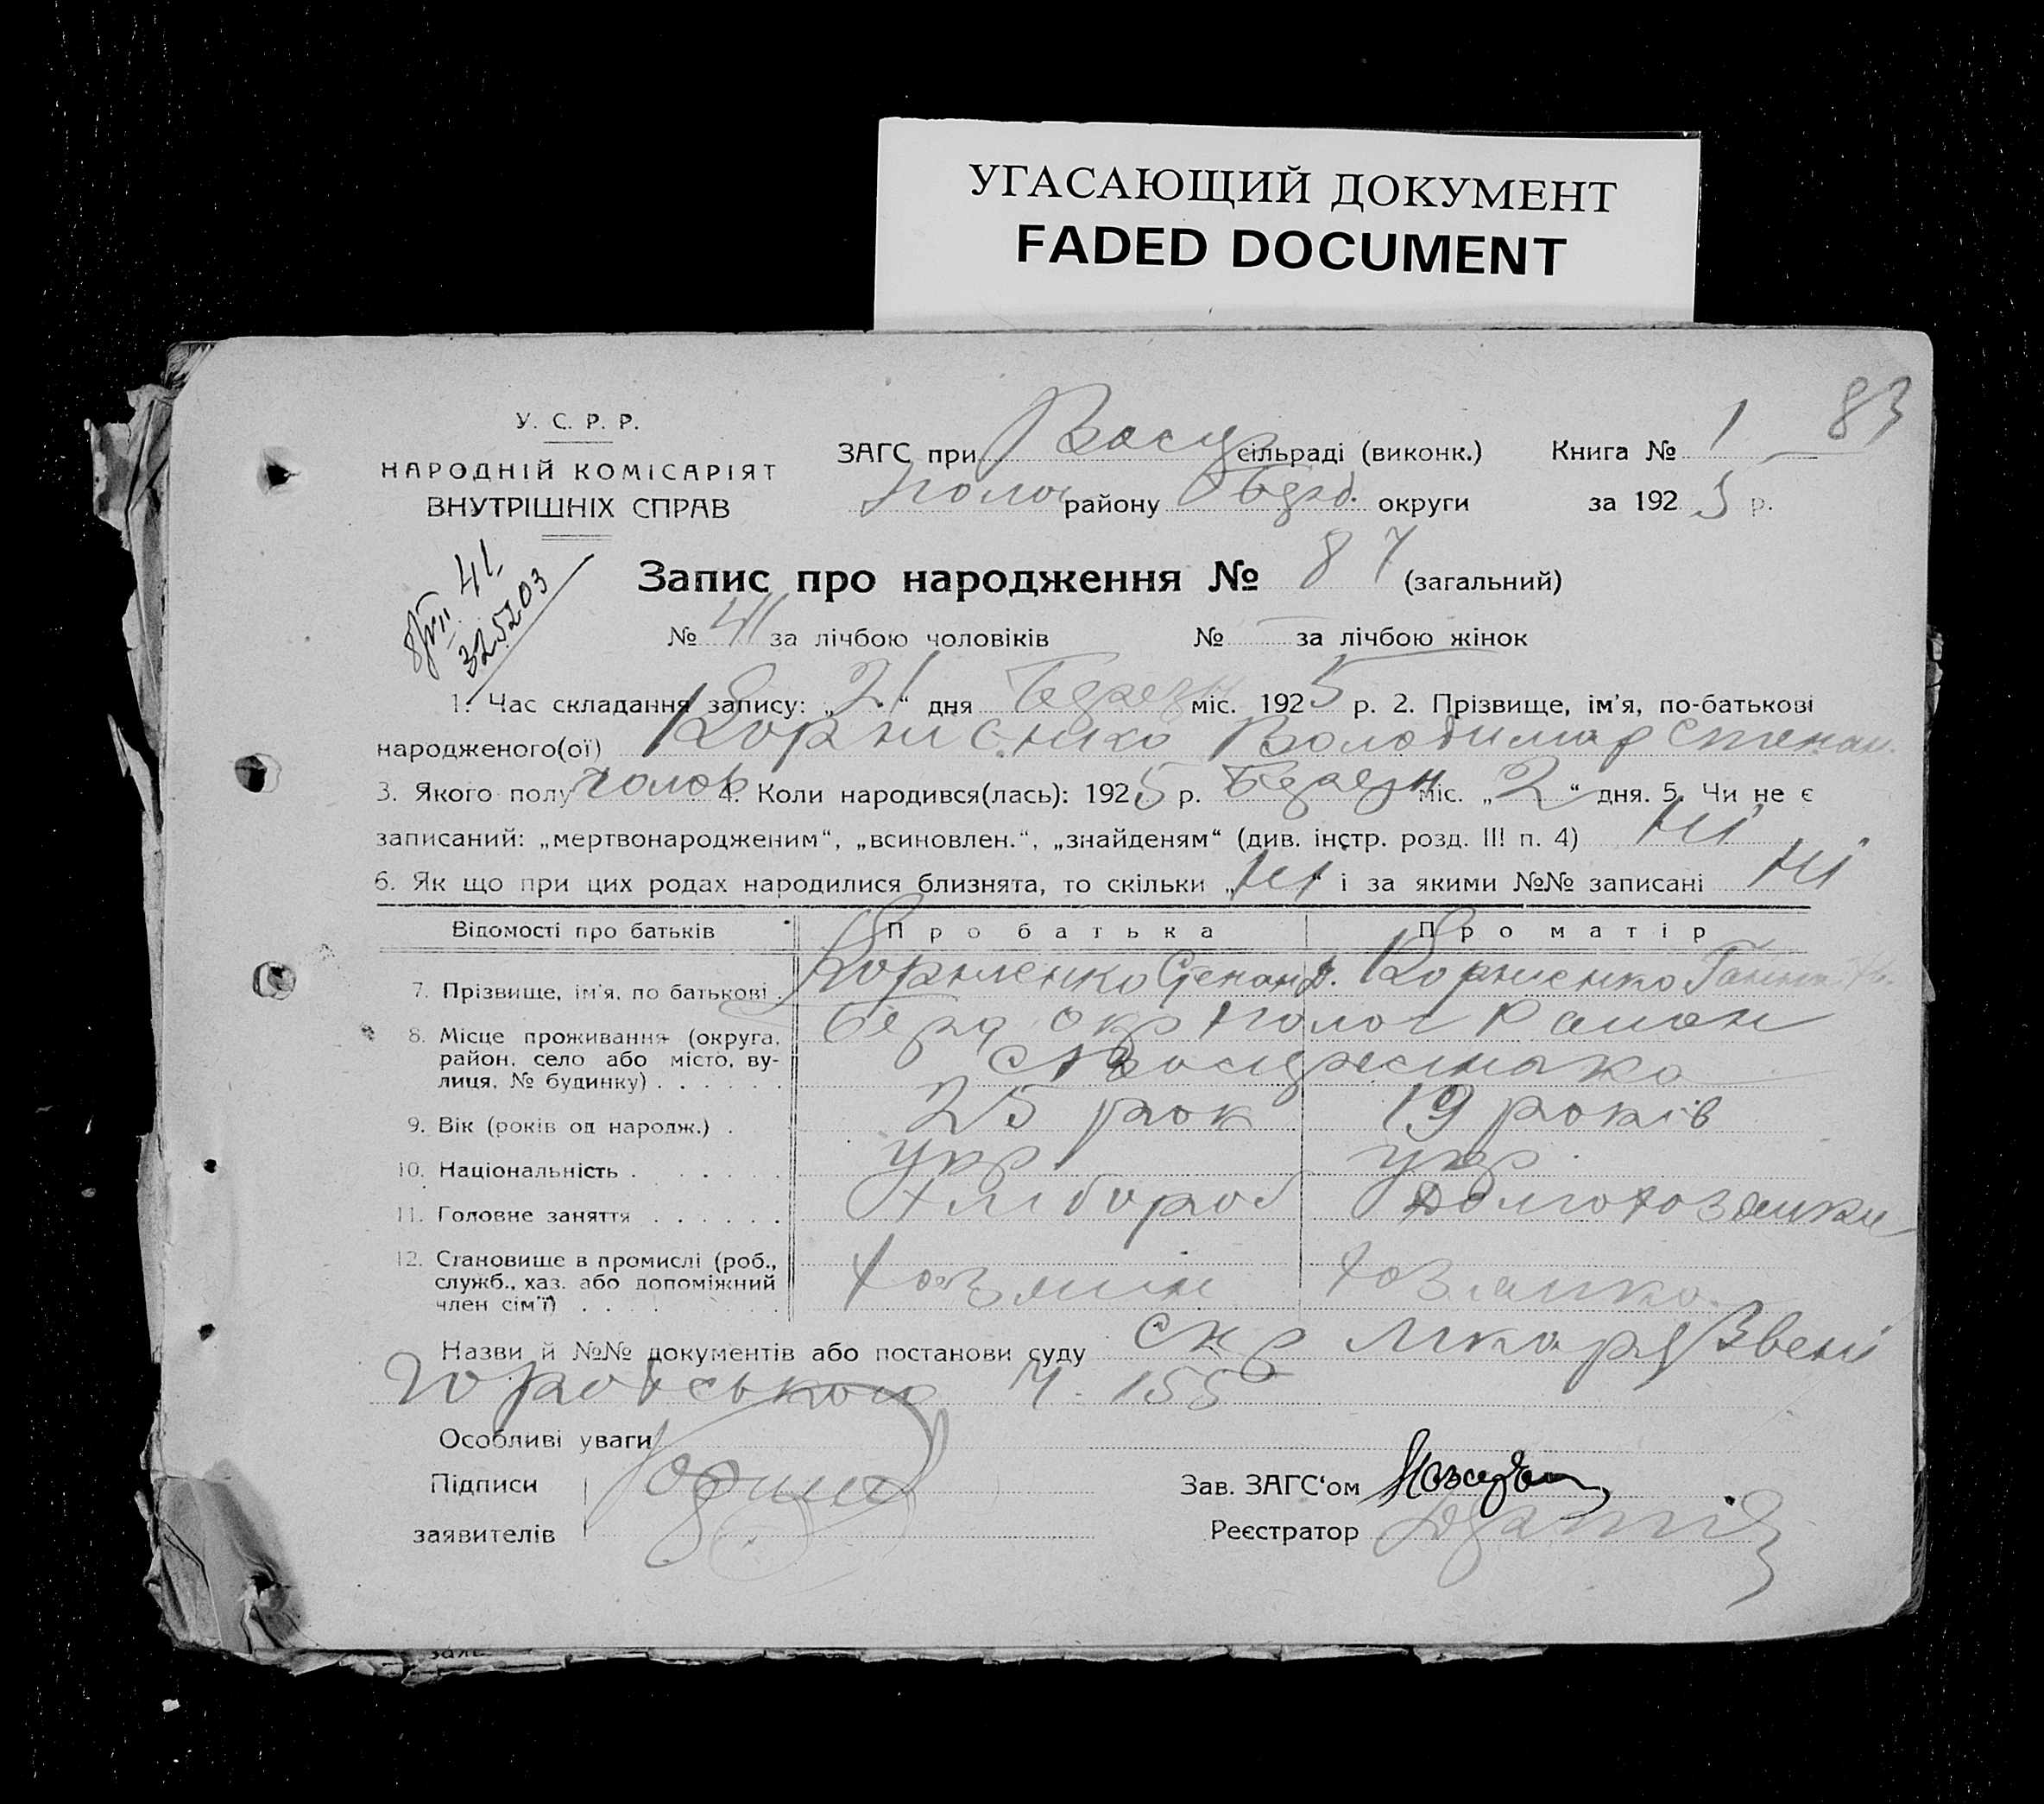 УГАСАЮЩИЙ ДОКУМЕНТ
FADED DOCUMENT
83
У. С. Р. Р.
НАРОДНІЙ КОМІСАРІЯТ
ВНУТРІШНІХ СПРАВ
ЗАГС при сільраді (виконк.) Книга № 1
району округи за 1925 р.
41
325203
Запис про народження № 87 (загальний)
№ 41 за лічбою чоловіків № — за лічбою жінок
1. Час складання запису: „21“ дня Березн міс. 1925 р. 2. Прізвище, ім'я, по-батькові
народженого(ої) Корнієнко Володимир Степан.
3. Якого полу чолов 4. Коли народився(лась): 1925 р. Березн міс. „2“ дня. 5. Чи не є
записаний: „мертвонародженим“, „всиновлен.“, „знайденям“ (див. інстр. розд. III п. 4) Ні
6. Як що при цих родах народилися близнята, то скільки „Ні“ і за якими №№ записані Ні
Відомості про батьків Про батька Про матір
7. Прізвище, ім'я, по батькові . Корниенко Степан Д. Корниенко Ганна
8. Місце проживання (округа, район, село або місто, вулиця, № будинку) . . . . . . Берд окр Полог Район
9. Вік (років од народж.) . 25 рок 19 років
10. Національність . . . . . укр укр.
11. Головне заняття . . . . . . Хлібороб
12. Становище в промислі (роб., служб., хаз. або допоміжний член сім'ї) . . . . Хозяин Хозяика
Назви й №№ документів або постанови суду
Ч. 155
Особливі уваги
Підписи
Зав. ЗАГС'ом
заявителів
Реєстратор